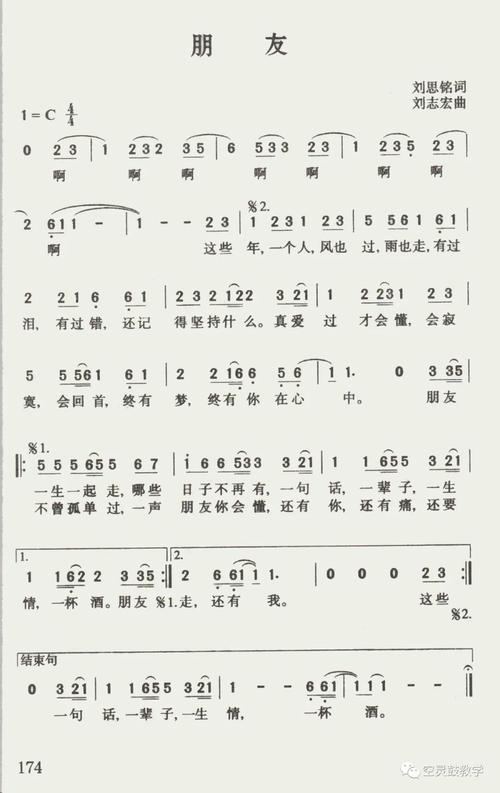 朋 友
刘思铭词
刘志宏曲
1=C 4/4
0 23 | 1 2332 35 | 6 533 35 | 2 235 23 |
啊 啊 啊 啊 啊 啊
2 611 - | 1 - - 23 | 1 231 23 | 5 5561 61 |
𝄋2.
啊 这些 年,一个人,风也 过,雨也走,有过
2 21 6 61 | 232 2122 3 321 | 1 2231 23 |
泪,有过错,还记 得坚持什么。真爱 过 才会懂,会寂
5 5561 61 | 2 2166 56 | 1 . 0 335 |
寞,会回首,终有 梦,终有你在心 中。 朋友
𝄋1.
5 5 5 655 67 | 1 66 533 321 | 1 1655 321 |
一生一起 走,哪些 日子不再有,一句 话,一辈子,一生
不曾孤单 过,一声 朋友你会 懂,还有 你,还有痛,还要
1. 2.
1 1622 335 | 2 6611 . | 1 - - 23
情,一杯 酒。朋友 𝄋1.走,还有 我。 这些
𝄋2.
结束句
0 321 | 1 1655 321 | 1 - - 661 | 1 - - -
一句 话,一辈子,一生 情, 一杯 酒。
174
空灵鼓教学